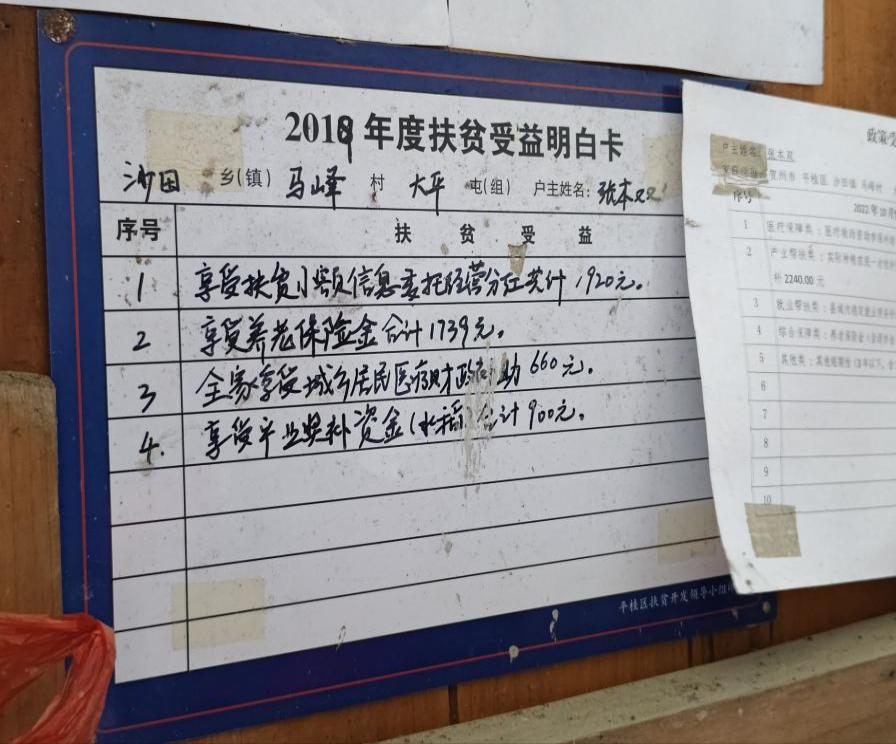 2019年度扶贫受益明白卡
沙田 乡(镇) 马峰 村 大平 屯(组) 户主姓名: 张本双
序号 扶贫受益
1 享受扶贫小额信息委托经营分红共计1920元。
2 享受养老保险金合计1739元。
3 全家享受城乡居民医疗财政 助660元。
4. 享受产业奖补资金(水稻)合计900元。
平桂区扶贫开发领导小组
政策受
户主姓名: 张本双
贺州市 平桂区 沙田镇 马峰村
序号
2022年10月
1 医疗保障类:
2 产业帮扶类:
补2240.00元
3 就业帮扶类:
4 综合保障类: 养老保险金
5 其他类:
6
7
8
9
10